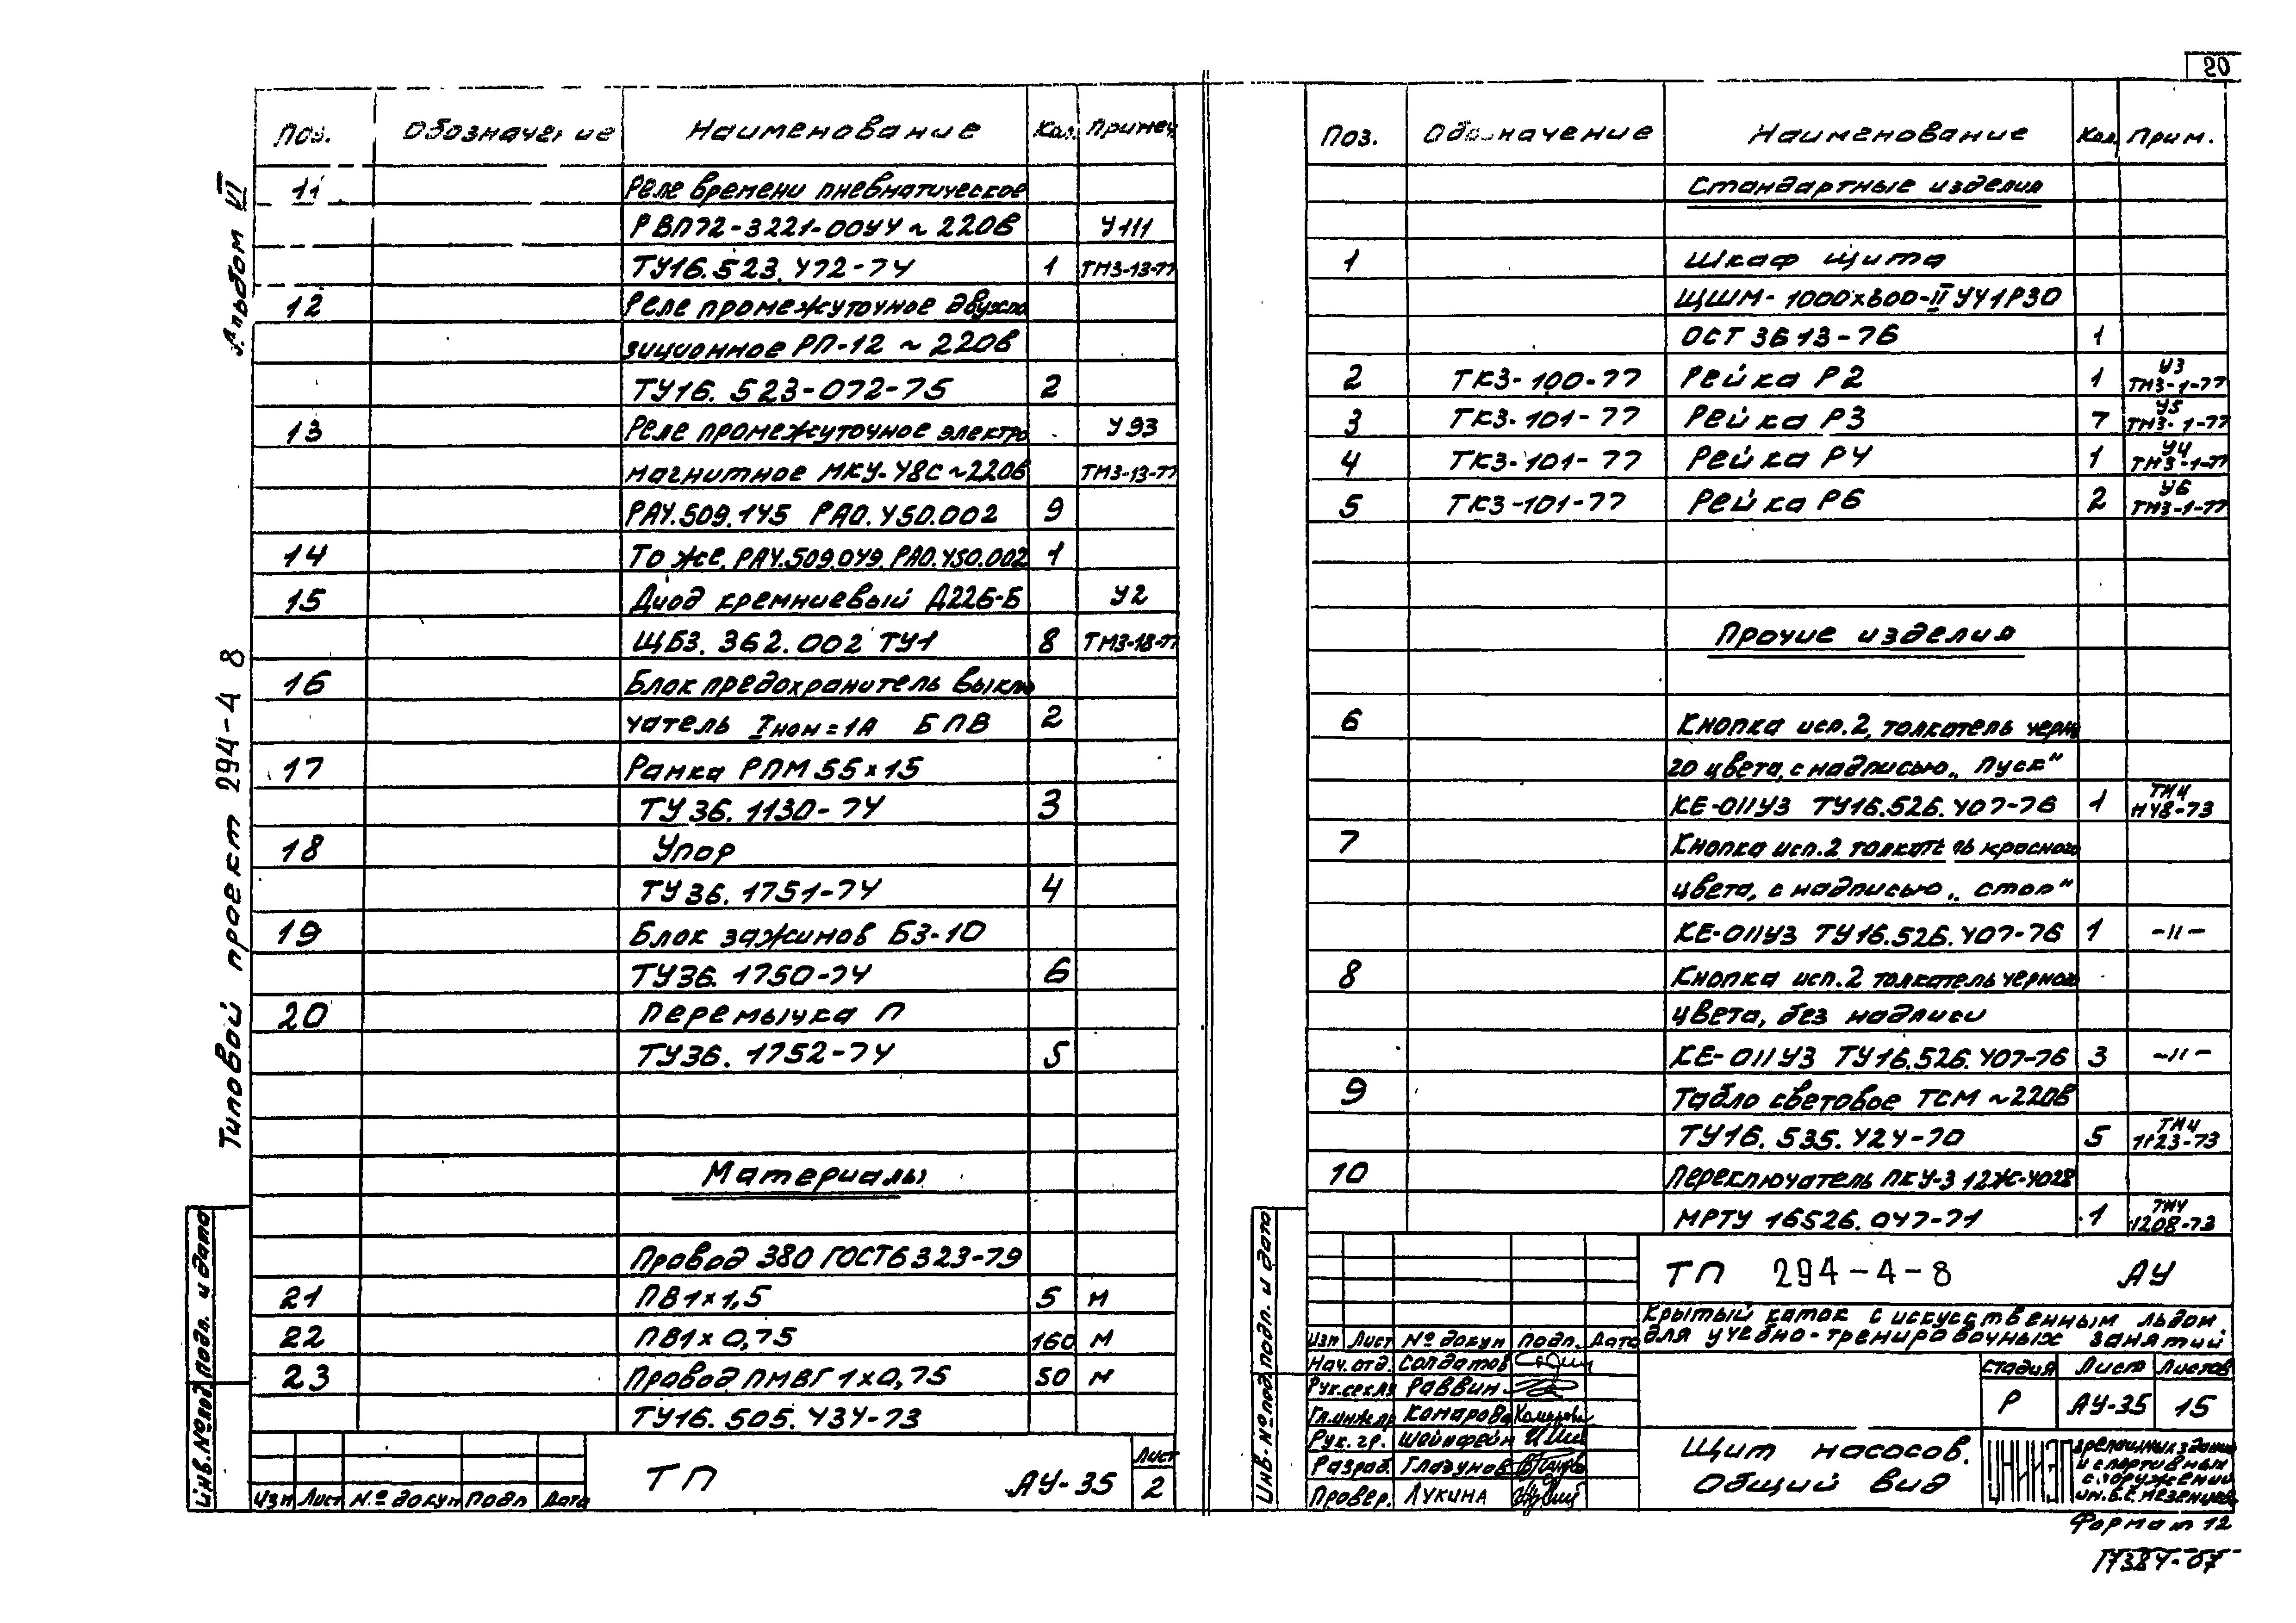 20
Альбом VI
Типовой проект 294-4 8
Поз. Обозначение Наименование Кол. Примеч.
11 Реле времени пневматическое
РВП72-3221-00У4 ~ 220В У111
ТУ16.523.472-74 1 ТМ3-13-77
12 Реле промежуточное двухпо
зиционное РП-12 ~ 220В
ТУ16. 523-072-75 2
13 Реле промежуточное электро У93
магнитное МКУ-48С ~220В ТМ3-13-77
РА4.509.145 РА0.450.002 9
14 То же РА4.509.049. РА0.450.002 1
15 Диод кремниевый Д226-Б У2
ЩБ3. 362. 002 ТУ1 8 ТМ3-18-77
16 Блок предохранитель выклю
чатель Iном=1А БПВ 2
17 Рамка РПМ 55×15
ТУ 36. 1130-74 3
18 Упор
ТУ36. 1751-74 4
19 Блок зажимов БЗ-10
ТУ36. 1750-74 6
20 Перемычка П
ТУ36. 1752-74 5
Материалы
Провод 380 ГОСТ 6323-79
21 ПВ1×1,5 5 м
22 ПВ1×0,75 160 м
23 Провод ПМВГ 1×0,75 50 м
ТУ16. 505. 434-73
Инв.№ под Подп. и дата
Изм Лист № докум Подп Дата
ТП АУ-35 Лист 2
Поз. Обозначение Наименование Кол. Прим.
Стандартные изделия
1 Шкаф щита
ЩШМ-1000×600-II УЧ1Р30
ОСТ 36 13-76 1
2 ТК3-100-77 Рейка Р2 1 У3 ТМ3-1-77
3 ТК3-101-77 Рейка Р3 7 У5 ТМ3-1-77
4 ТК3-101-77 Рейка Р4 1 У4 ТМ3-1-77
5 ТК3-101-77 Рейка Р6 2 У6 ТМ3-1-77
Прочие изделия
6 Кнопка исп.2, толкатель черно
го цвета, с надписью „Пуск“
КЕ-011У3 ТУ16.526.407-76 1 ТМ4 448-73
7 Кнопка исп.2 толкатель красного
цвета, с надписью „стоп“
КЕ-011У3 ТУ16.526.407-76 1 -II-
8 Кнопка исп.2 толкатель черного
цвета, без надписи
КЕ-011У3 ТУ16.526.407-76 3 -II-
9 Табло световое ТСМ ~220В
ТУ16. 535. 424-70 5 ТМ4 1123-73
10 Переключатель ПКУ-3 12Ж-4028
МРТУ 16526.047-71 1 ТМ4 1208-73
Инв.№ под Подп. и дата
ТП 294-4-8 АУ
Крытый каток с искусственным льдом
для учебно-тренировочных занятий
Изм Лист № докум Подп. Дата
Нач.отд. Солдатов
Рук.сект Раввин
Гл.инж.пр Комарова
Рук. гр. Шейнфейн
Разраб. Глазунов
Провер. Лукина
Стадия Лист Листов
Р АУ-35 15
Щит насосов.
Общий вид
зрелищных зданий
и спортивных
сооружений
им. Б.С. Мезенцева
Формат 12
17384-07